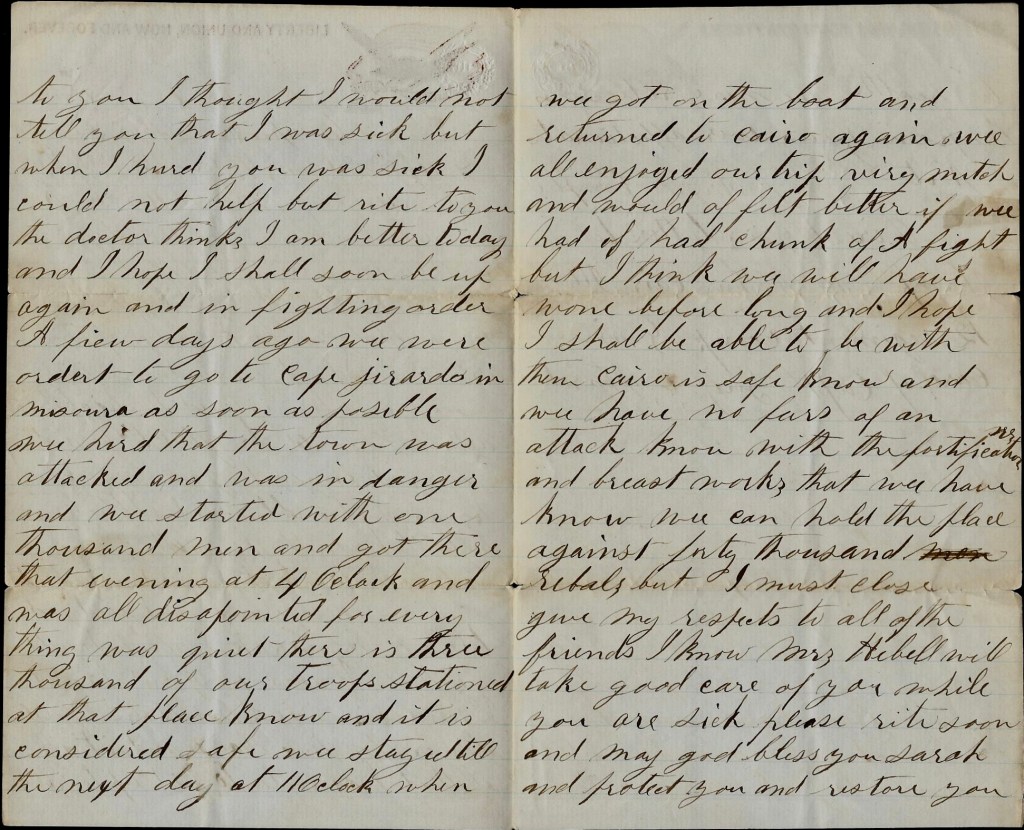 LIBERTY AND UNION, NOW AND FOREVER.
to you I thought I would not
tell you that I was sick but
when I hurd you was sick I
could not help but rite to you
the doctor thinks I am better today
and I hope I shall soon be up
again and in fighting order
A fiew days ago wee were
ordert to go to Cape jirardo in
misoura as soon as posible
wee hird that the town was
attacked and was in danger
and wee started with one
thousand men and got there
that evening at 4 Oclock and
was all disapointed for every
thing was quiet there is three
thousand of our troops stationed
at that place know and it is
considered safe wee stayed till
the next day at 11 Oclock when
wee got on the boat and
returned to cairo again wee
all enjoyed our trip viry mutch
and would of felt better if wee
had of had chunk of A fight
but I think wee will have
wone before long and I hope
I shall be able to be with
them cairo is safe know and
wee have no furs of an
attack know with the fortifications
and breast works that wee have
know wee can hold the place
against forty thousand men
rebals but I must close
give my respects to all of the
friends I know Mrs Hebell will
take good care of you while
you are sick please rite soon
and may god bless you sarah
and protect you and restore you